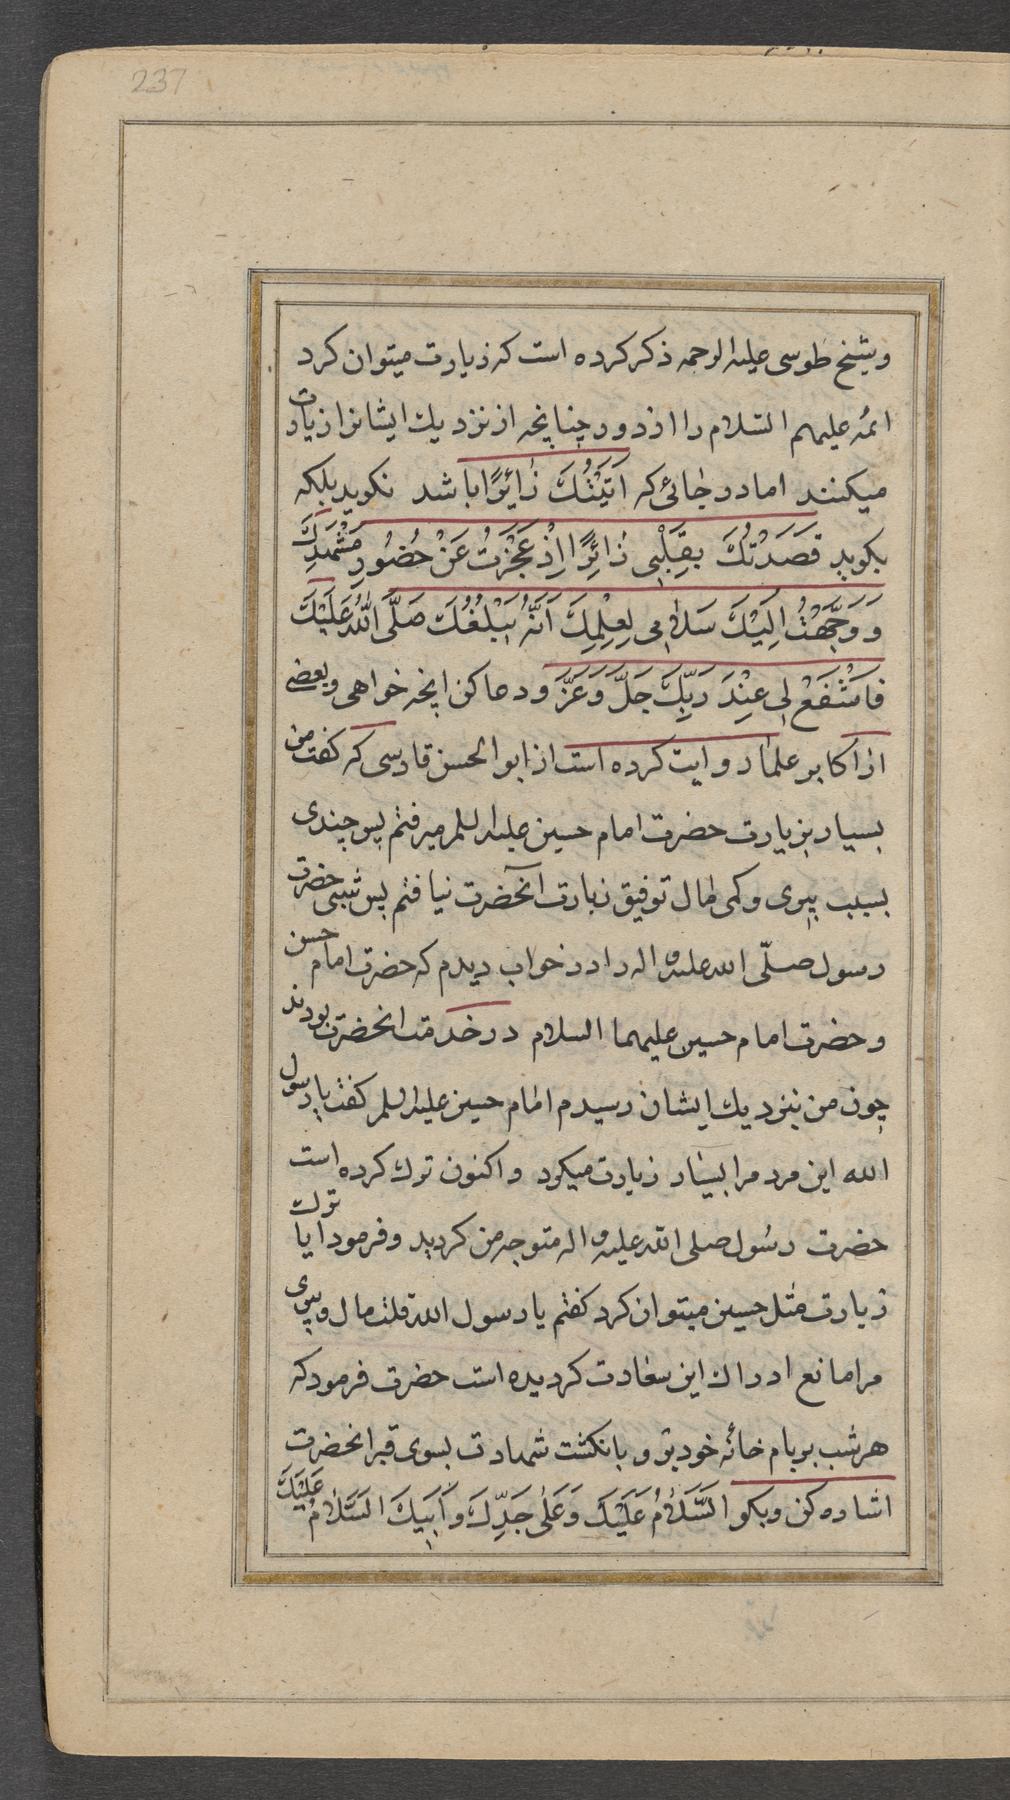 237
وشیخ طوسی علیه الرحمه ذکر کرده است که زیارت میتوان کرد
ائمه علیهم السّلام را از دور چنانچه از نزدیك ایشانرا زیارت
میکنند اما در جائی که اَتَیْتُكَ زٰائِرًا باشد نکوید بلکه
بکوید قَصَدْتُكَ بِقَلْبِی زٰائِرًا اِذْ عَجَزْتُ عَنْ حُضُورِ مَشْهَدِكَ
وَ وَجَّهْتُ اِلَیْكَ سَلاٰمِی لِعِلْمِكَ اَنَّهُ یَبْلُغُكَ صَلَّی اللّٰهُ عَلَیْكَ
فَاشْفَعْ لِی عِنْدَ رَبِّكَ جَلَّ وَعَزَّ ودعا کن انچه خواهی وبعضی
از اکابر علما روایت کرده است از ابو الحسن فارسی که کفت من
بسیار بزیارت حضرت امام حسین علیه السلم میرفتم پس چندی
بسبب پیری وکمی مال توفیق زیارت آنحضرت نیافتم پس شبی حضرت
رسول صلّی الله علیه واله را در خواب دیدم که حضرت امام حسن
وحضرت امام حسین علیهما السلام در خدمت انحضرت بودند
چون من بنزدیك ایشان رسیدم امام حسین علیه السلم کفت یا رسول
الله این مرد مرا بسیار زیارت میکرد واکنون ترك کرده است
حضرت رسُول صلی الله علیه واله متوجه من کردید وفرمود ایا ترك
زیارت مثل حسین میتوان کرد کفتم یا رسول الله قلت مال وپیری
مرا مانع ادراك این سعادت کردیده است حضرت فرمود که
هر شب بر بام خانهٔ خود برو و بانکشت شهادت بسوی قبر انحضرت
اشاره کن وبکو اَلسَّلاٰمُ عَلَیْكَ وَعَلٰی جَدِّكَ وَاَبیكَ السَّلاٰمُ عَلَیْكَ